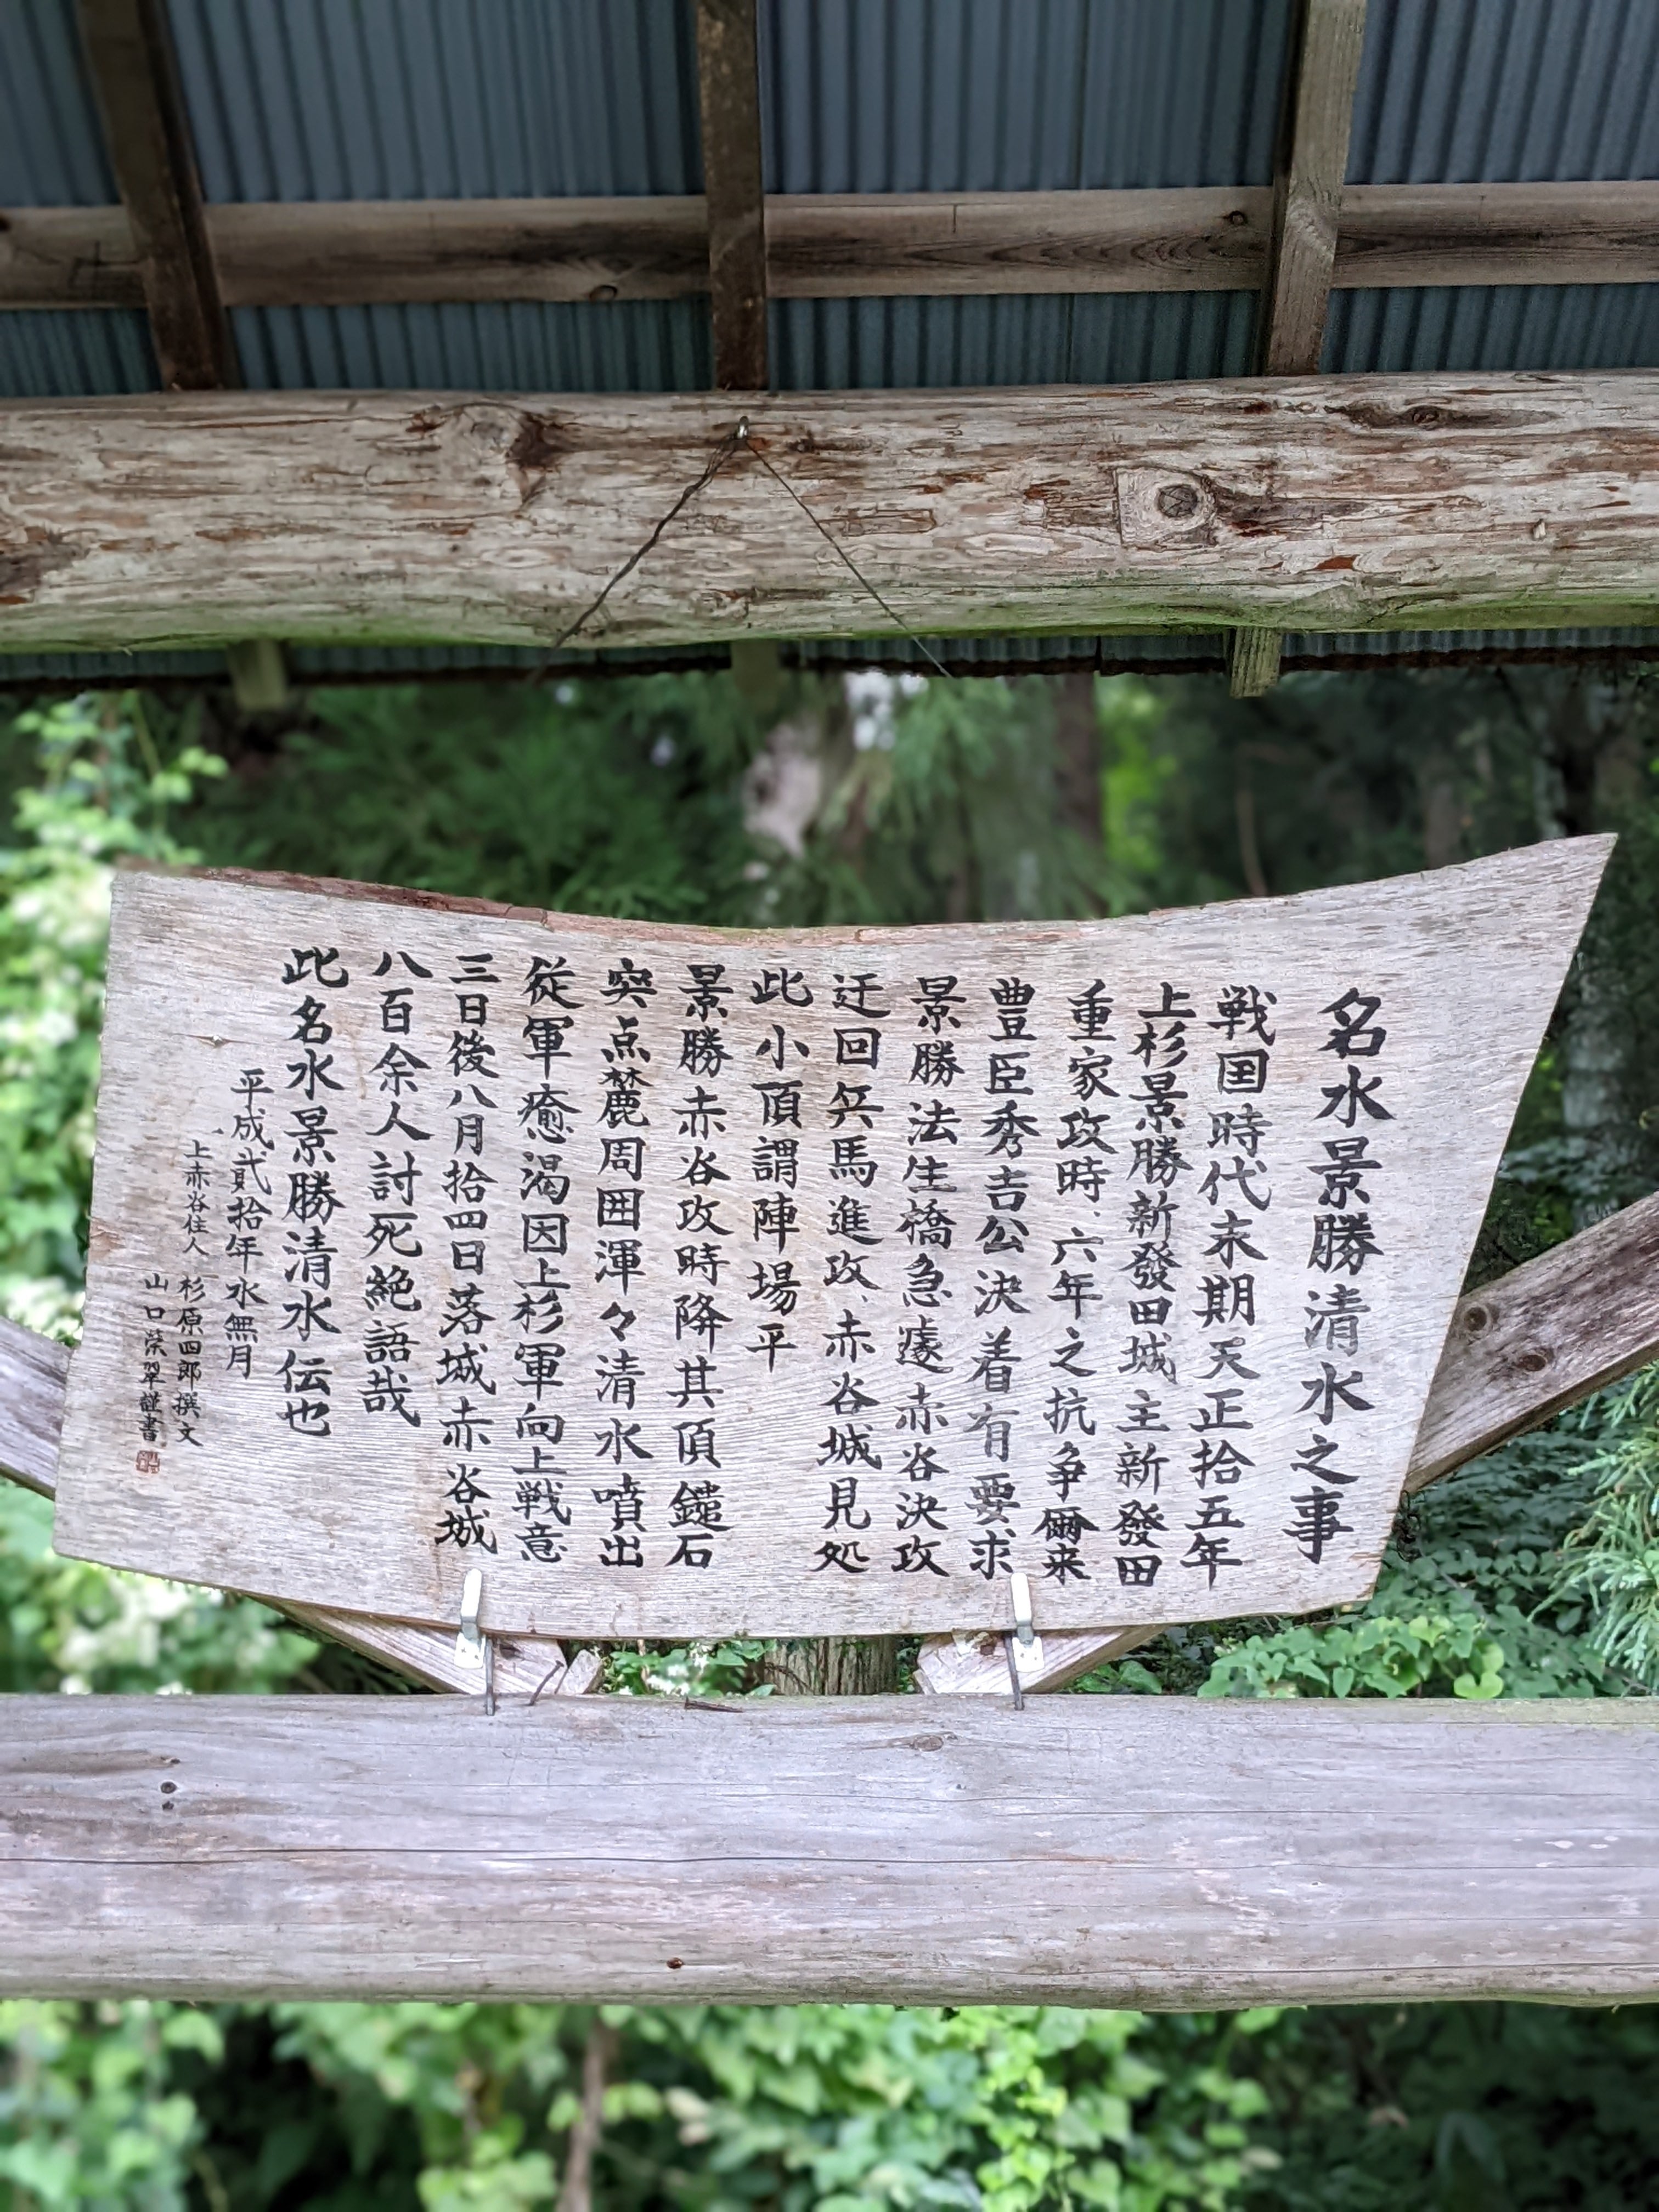 名水景勝清水之事
戦国時代末期天正拾五年
上杉景勝新發田城主新發田
重家攻時、六年之抗争爾来
豊臣秀吉公決着有要求
景勝法生橋急遽赤谷決攻
迂回兵馬進攻、赤谷城見処
此小頂謂陣場平
景勝赤谷攻時降其頂鑓石
突点麓周囲渾々清水噴出
従軍癒渇因上杉軍向上戦意
三日後八月拾四日落城赤谷城
八百余人討死絶語哉
此名水景勝清水伝也
平成貳拾年水無月
上赤谷住人 杉原四郎撰文
山口榮翠謹書